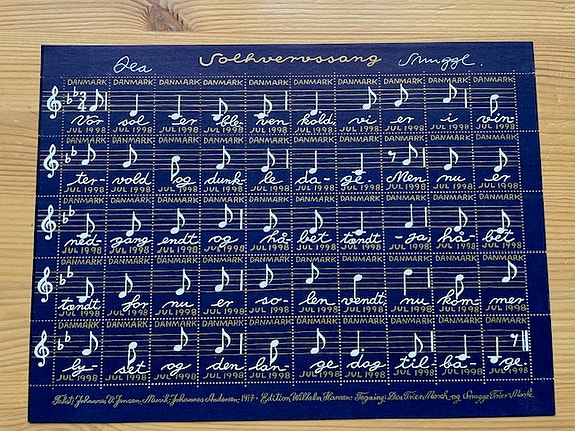 Dea Solhvervssang Snuggl.
DANMARK DANMARK DANMARK DANMARK DANMARK DANMARK DANMARK DANMARK DANMARK DANMARK
2 4
Vor sol er ble- ven kold, vi er i vin-
JUL 1998 JUL 1998 JUL 1998 JUL 1998 JUL 1998 JUL 1998 JUL 1998 JUL 1998 JUL 1998 JUL 1998
DANMARK DANMARK DANMARK DANMARK DANMARK DANMARK DANMARK DANMARK DANMARK DANMARK
ter- vold og dunk- le da- ge. Men nu er
JUL 1998 JUL 1998 JUL 1998 JUL 1998 JUL 1998 JUL 1998 JUL 1998 JUL 1998 JUL 1998 JUL 1998
DANMARK DANMARK DANMARK DANMARK DANMARK DANMARK DANMARK DANMARK DANMARK DANMARK
ned- gang endt og hå- bet tændt - ja hå- bet
JUL 1998 JUL 1998 JUL 1998 JUL 1998 JUL 1998 JUL 1998 JUL 1998 JUL 1998 JUL 1998 JUL 1998
DANMARK DANMARK DANMARK DANMARK DANMARK DANMARK DANMARK DANMARK DANMARK DANMARK
tændt for nu er so- len vendt, nu kom- mer
JUL 1998 JUL 1998 JUL 1998 JUL 1998 JUL 1998 JUL 1998 JUL 1998 JUL 1998 JUL 1998 JUL 1998
DANMARK DANMARK DANMARK DANMARK DANMARK DANMARK DANMARK DANMARK DANMARK DANMARK
ly- set og den lan- ge dag til- ba- ge.
JUL 1998 JUL 1998 JUL 1998 JUL 1998 JUL 1998 JUL 1998 JUL 1998 JUL 1998 JUL 1998 JUL 1998
Tekst: Johannes V. Jensen. Musik: Johannes Andersen - 1917 · Edition Wilhelm Hansen Tegning: Dea Trier Mørch og Snugge Trier Mørk